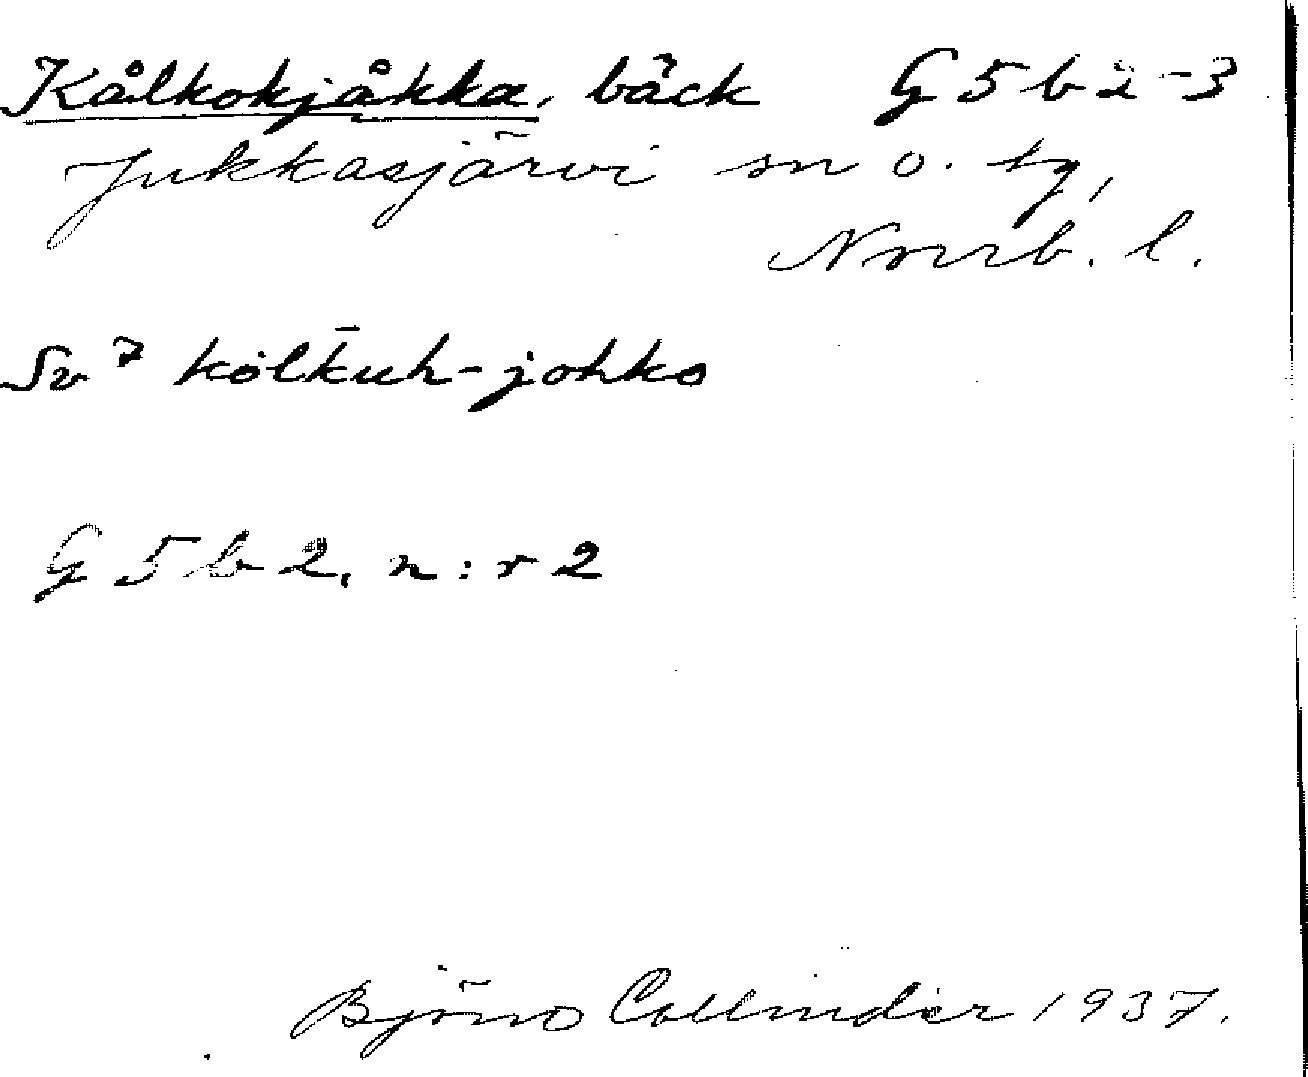 Kålkokjåkka, bäck G 5 b 2-3
Jukkasjärvi sn o. tg,
Norrb. l.
Sv 7 kolk̄uh-johko
G 5 b 2, n:r 2
Björn Collinder 1937.